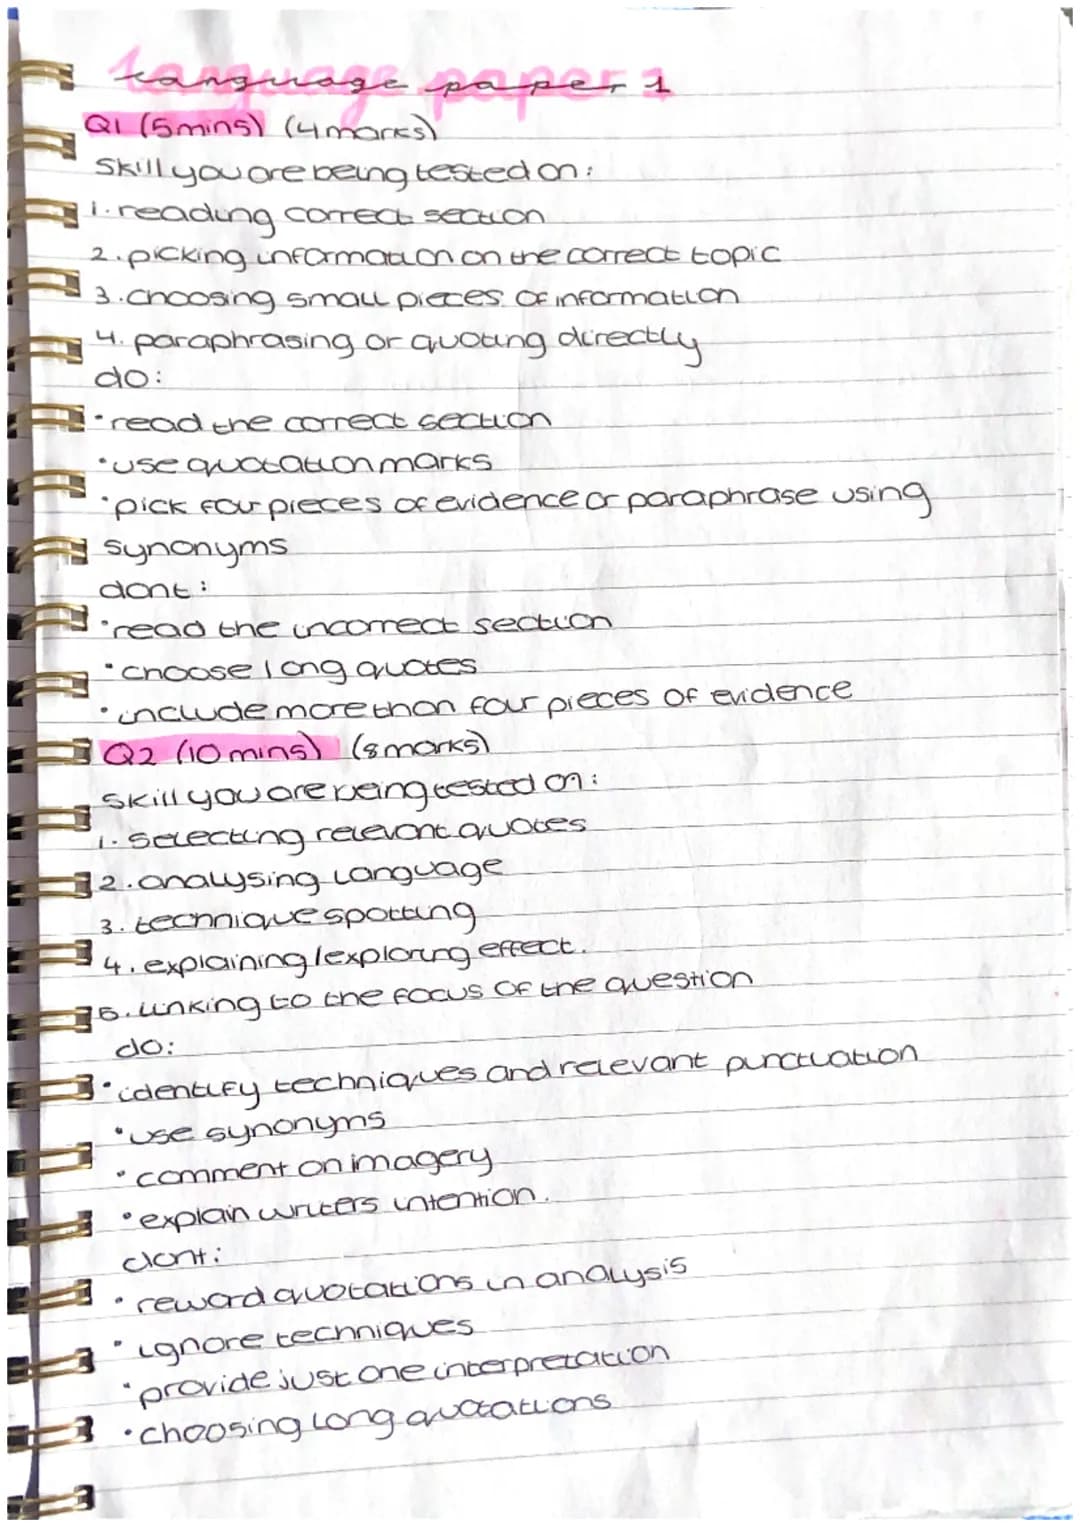 language paper 1
Q1 (5mins) (4marks)
Skill you are being tested on:
1. reading correct section
2. picking information on the correct topic
3. choosing small pieces of information
4. paraphrasing or quoting directly
do:
• read the correct section
• use quotation marks
• pick four pieces of evidence or paraphrase using
synonyms
dont:
• read the incorrect section
• choose long quotes
• include more than four pieces of evidence
Q2 (10 mins) (8marks)
Skill you are being tested on:
1. selecting relevant quotes
2. analysing language
3. technique spotting
4. explaining/exploring effect.
5. linking to the focus of the question
do:
• identify techniques and relevant punctuation
• use synonyms
• comment on imagery
• explain writers intention.
dont:
• reword quotations in analysis
• ignore techniques
• provide just one interpretation
• choosing long quotations